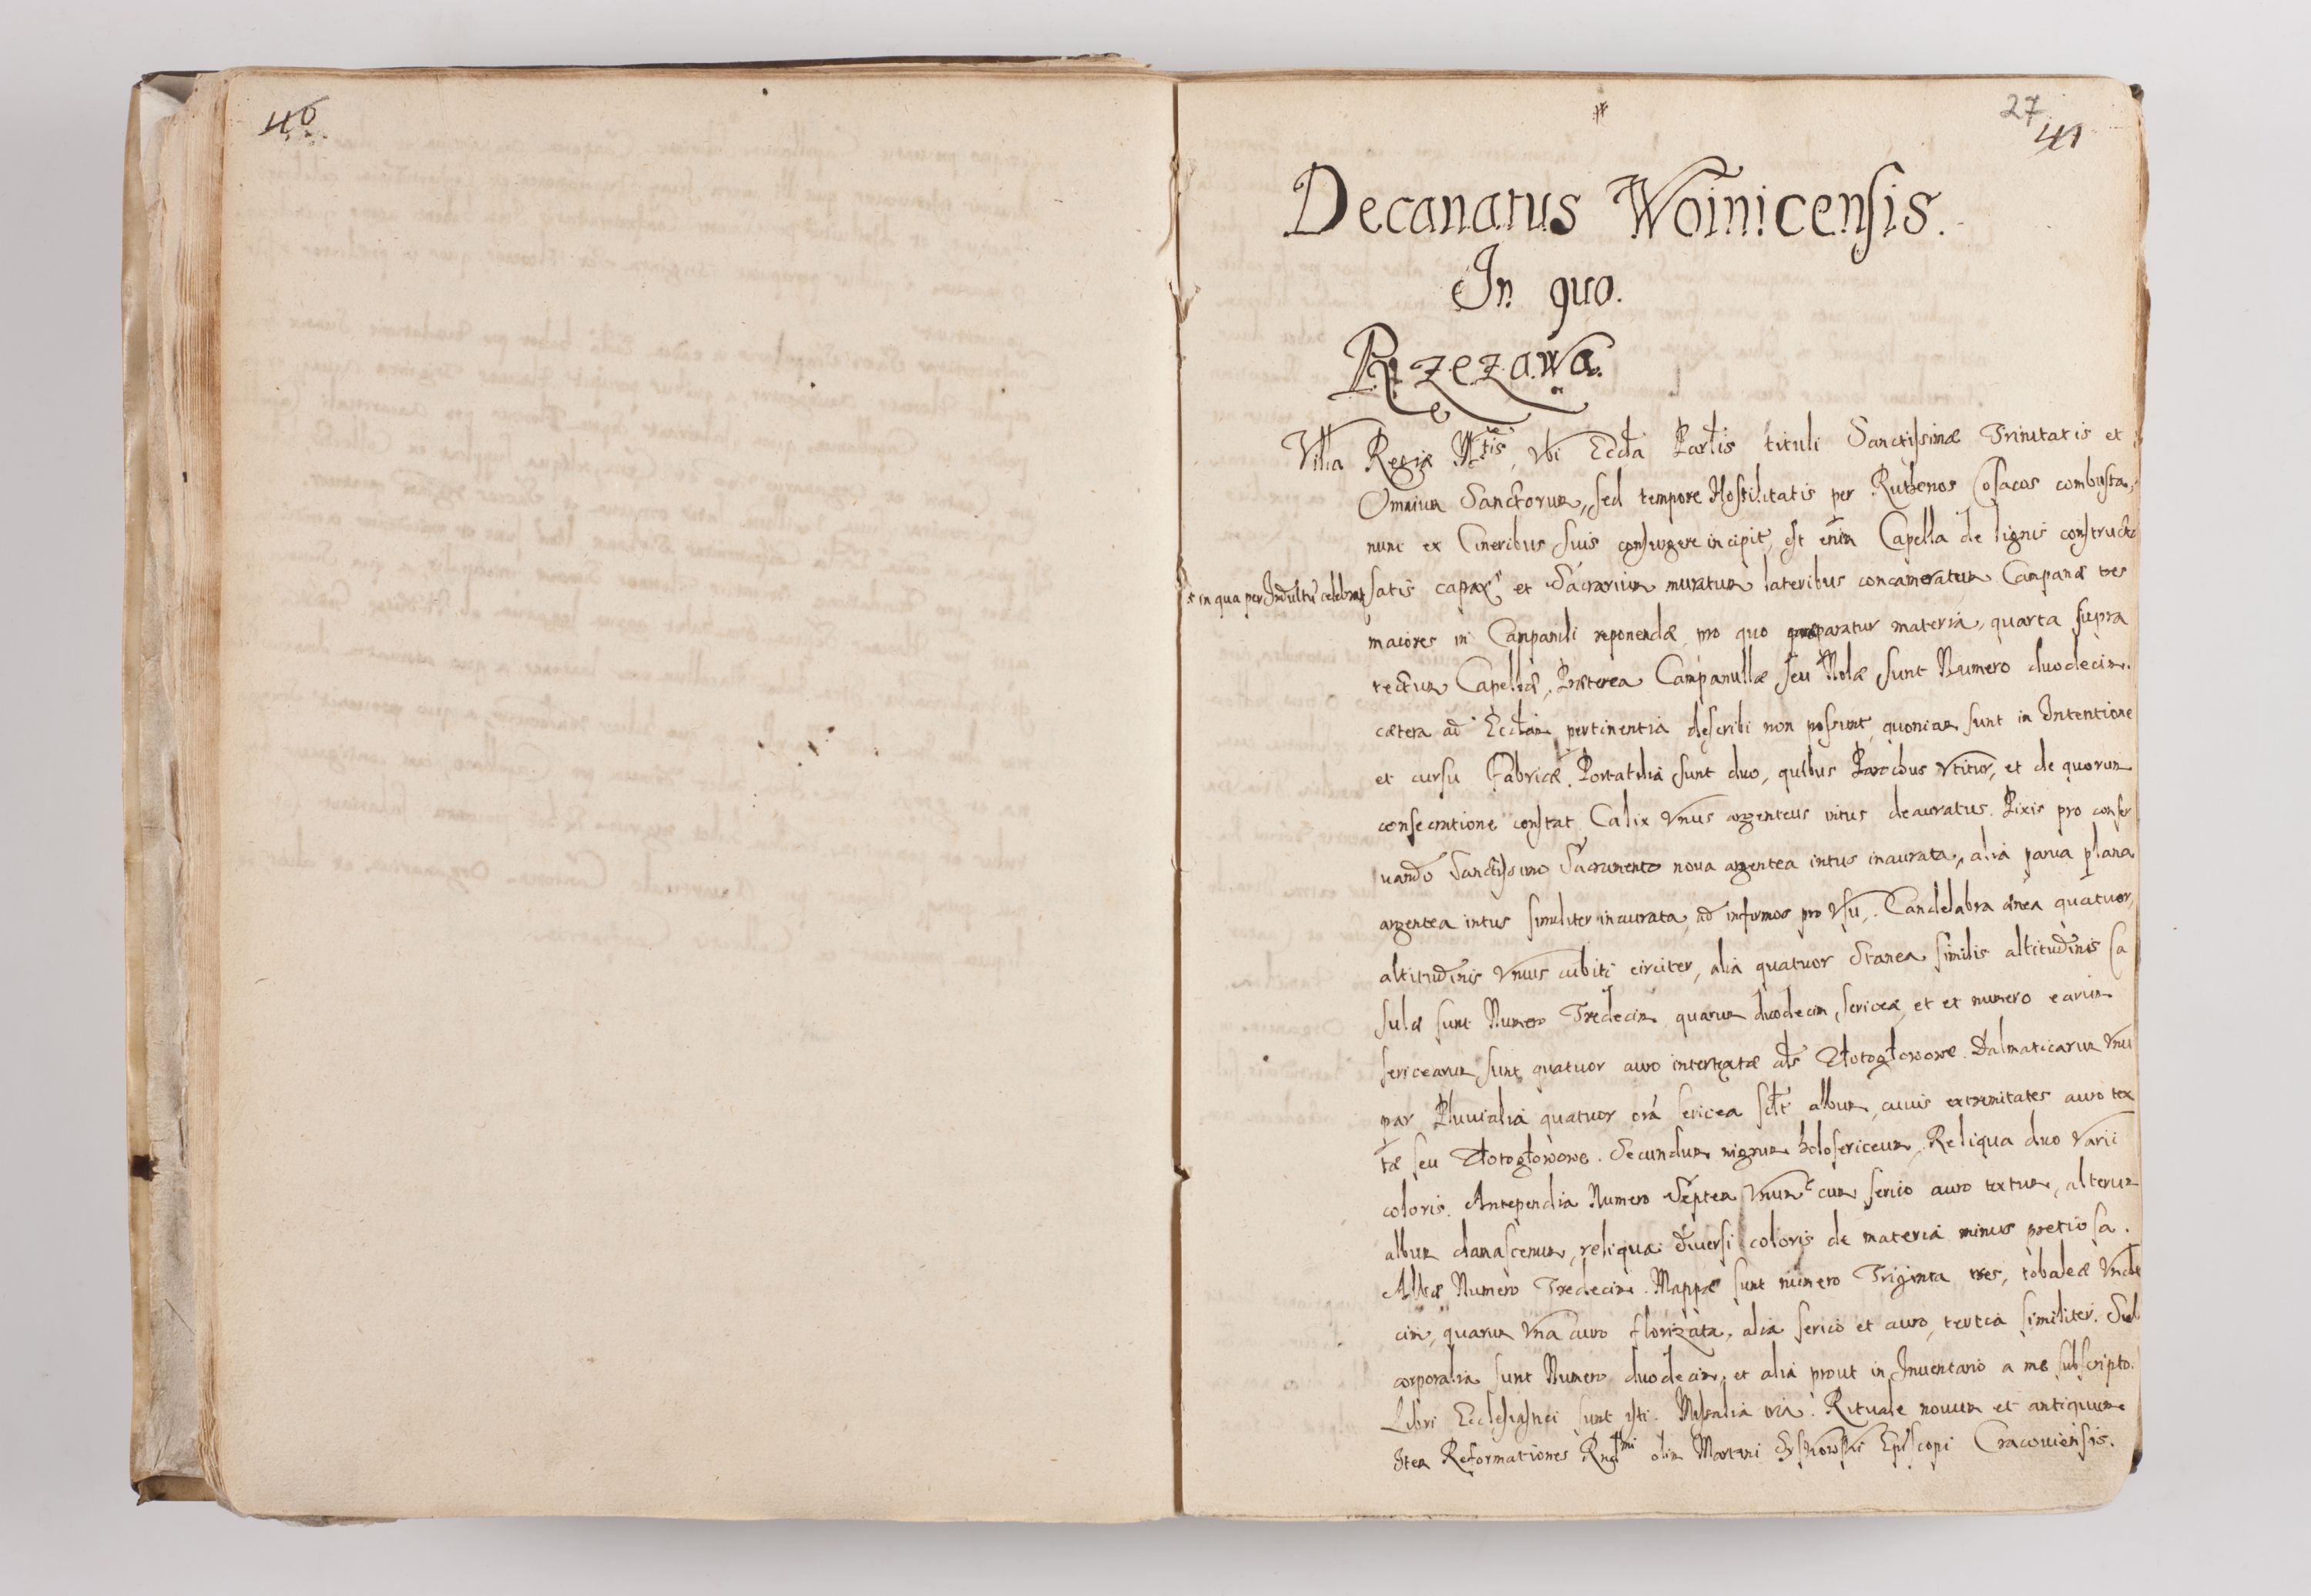 40
27
41
Decanatus Woinicensis.
In quo.
Rzezawa.
Villa Regiæ Mttis, Vbi Eccla Parlis tituli Sanctissimæ Trinitatis et
Omnium Sanctorum, sed tempore Hostilitatis per Ruthenos Cosacos combusta,
nunc ex Cineribus suis consurgere incipit, est enim Capella de lignis constructa
satis capax et Sacrarium muratum lateribus concameratum Campanæ tres
s in qua per Indultu celebrat
maiores in Campanili reponendæ, pro quo præparatur materia, quarta supra
tectum Capellæ, Præterea Campanullæ seu Nolæ sunt Numero duodecim.
cætera ad Ecclam pertinentia describi non possunt, quoniam sunt in Intentione
et cursu Fabricæ. Portatilia sunt duo, quibus Parochus Vtitur, et de quorum
consecratione constat. Calix Vnus argenteus intus deauratus. Pixis pro conser
uando Sanctissimo Sacramento noua argentea intus inaurata, alia parua plana
argentea intus similiter inaurata, ad infirmos pro Vsu. Candelabra ænea quatuor,
altitudinis Vnius cubiti circiter, alia quatuor Stanea similis altitudinis Ca
sulæ sunt Numero Tredecim quarum duodecim, sericeæ, et et numero earum
sericearum sunt quatuor auro intertextæ als Złotogłowowe. Dalmaticarum Vnu
par Pluuialia quatuor oia sericea sclt album, cuius extremitates auro tex
tæ seu Złotogłowowe. Secundum nigrum holosericeum, Reliqua duo Varii
coloris. Antependia Numero Septem Vnum cum serico auro textum, alterum
album damascenum, reliqua diuersi coloris de materia minus pretiosa.
Albæ Numero Tredecim. Mappæ sunt numero Triginta tres, tobaleæ Vnde
cim, quarum Vna auro florizata, alia serico et auro, tertia similiter. Sub
corporalia sunt Numero duodecim, et alia prout in Inuentario a me subscripto.
Libri Ecclesiastici sunt isti. Missalia tria. Rituale nouum et antiquum
Item Reformationes Rndmi olim Martini Szyszkowski Episcopi Cracouiensis.